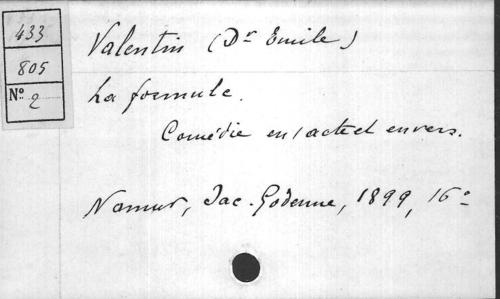 433
805
N° 2
Valentin (Dr Emile)
La formule.
Comédie en 1 acte et en vers.
Namur, Jac. Godenne, 1899, 16°